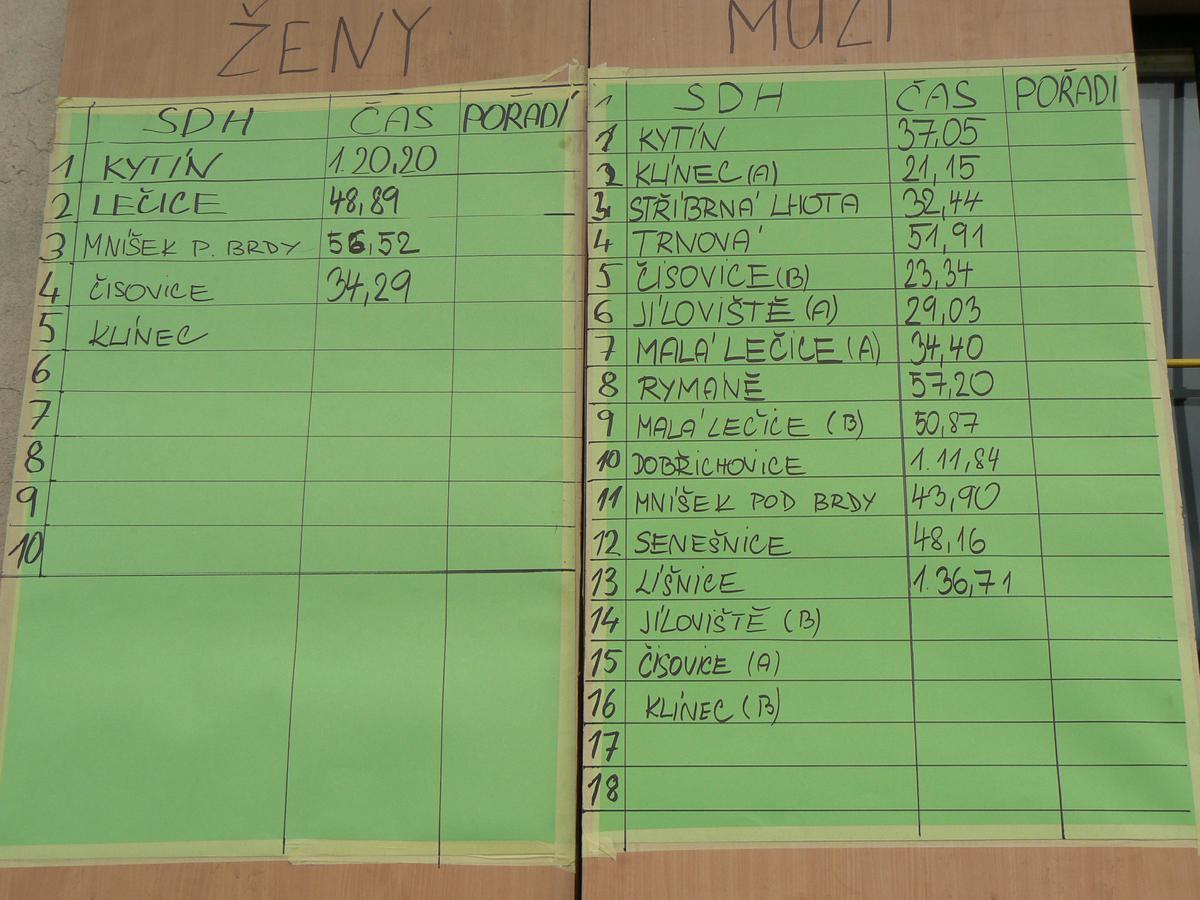 ŽENY
SDH ČAS POŘADÍ
1 KYTÍN 1.20,20
2 LEČICE 48,89
3 MNÍŠEK P. BRDY 56,52
4 ČISOVICE 34,29
5 KLÍNEC
6
7
8
9
10
MUŽI
1 SDH ČAS POŘADÍ
1 KYTÍN 37,05
2 KLÍNEC (A) 21,15
3 STŘÍBRNÁ LHOTA 32,44
4 TRNOVÁ 51,91
5 ČISOVICE (B) 23,34
6 JÍLOVIŠTĚ (A) 29,03
7 MALÁ LEČICE (A) 34,40
8 RYMANĚ 57,20
9 MALÁ LEČICE (B) 50,87
10 DOBŘICHOVICE 1.11,84
11 MNÍŠEK POD BRDY 43,90
12 SENEŠNICE 48,16
13 LÍŠNICE 1.36,71
14 JÍLOVIŠTĚ (B)
15 ČISOVICE (A)
16 KLÍNEC (B)
17
18